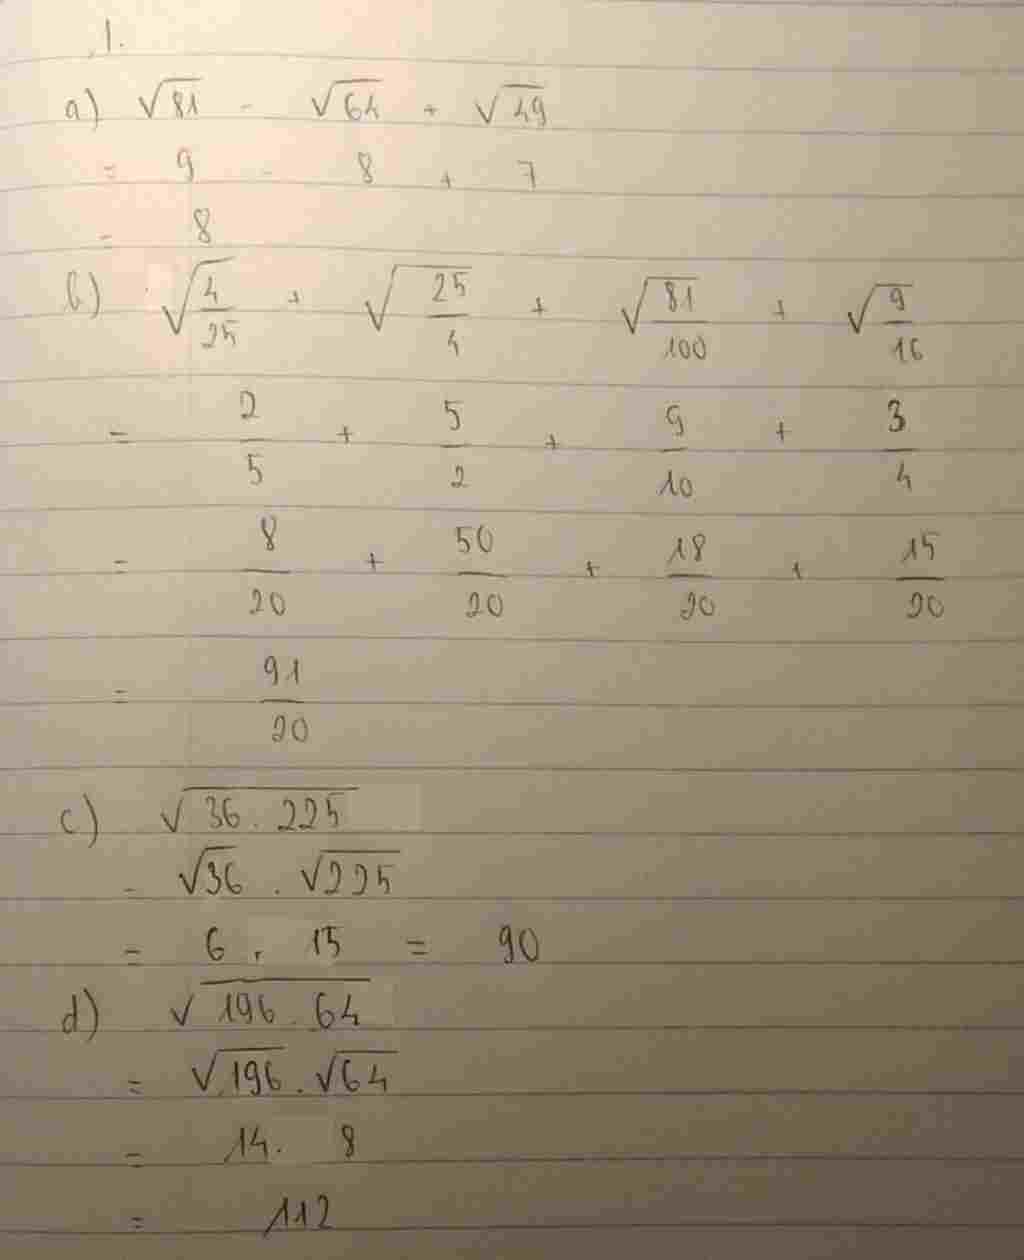 1.
a) √81 - √64 + √49
= 9 - 8 + 7
= 8
b) √(4/25) + √(25/4) + √(81/100) + √(9/16)
= 2/5 + 5/2 + 9/10 + 3/4
= 8/20 + 50/20 + 18/20 + 15/20
= 91/20
c) √(36 . 225)
= √36 . √225
= 6 . 15 = 90
d) √(196 . 64)
= √196 . √64
= 14 . 8
= 112